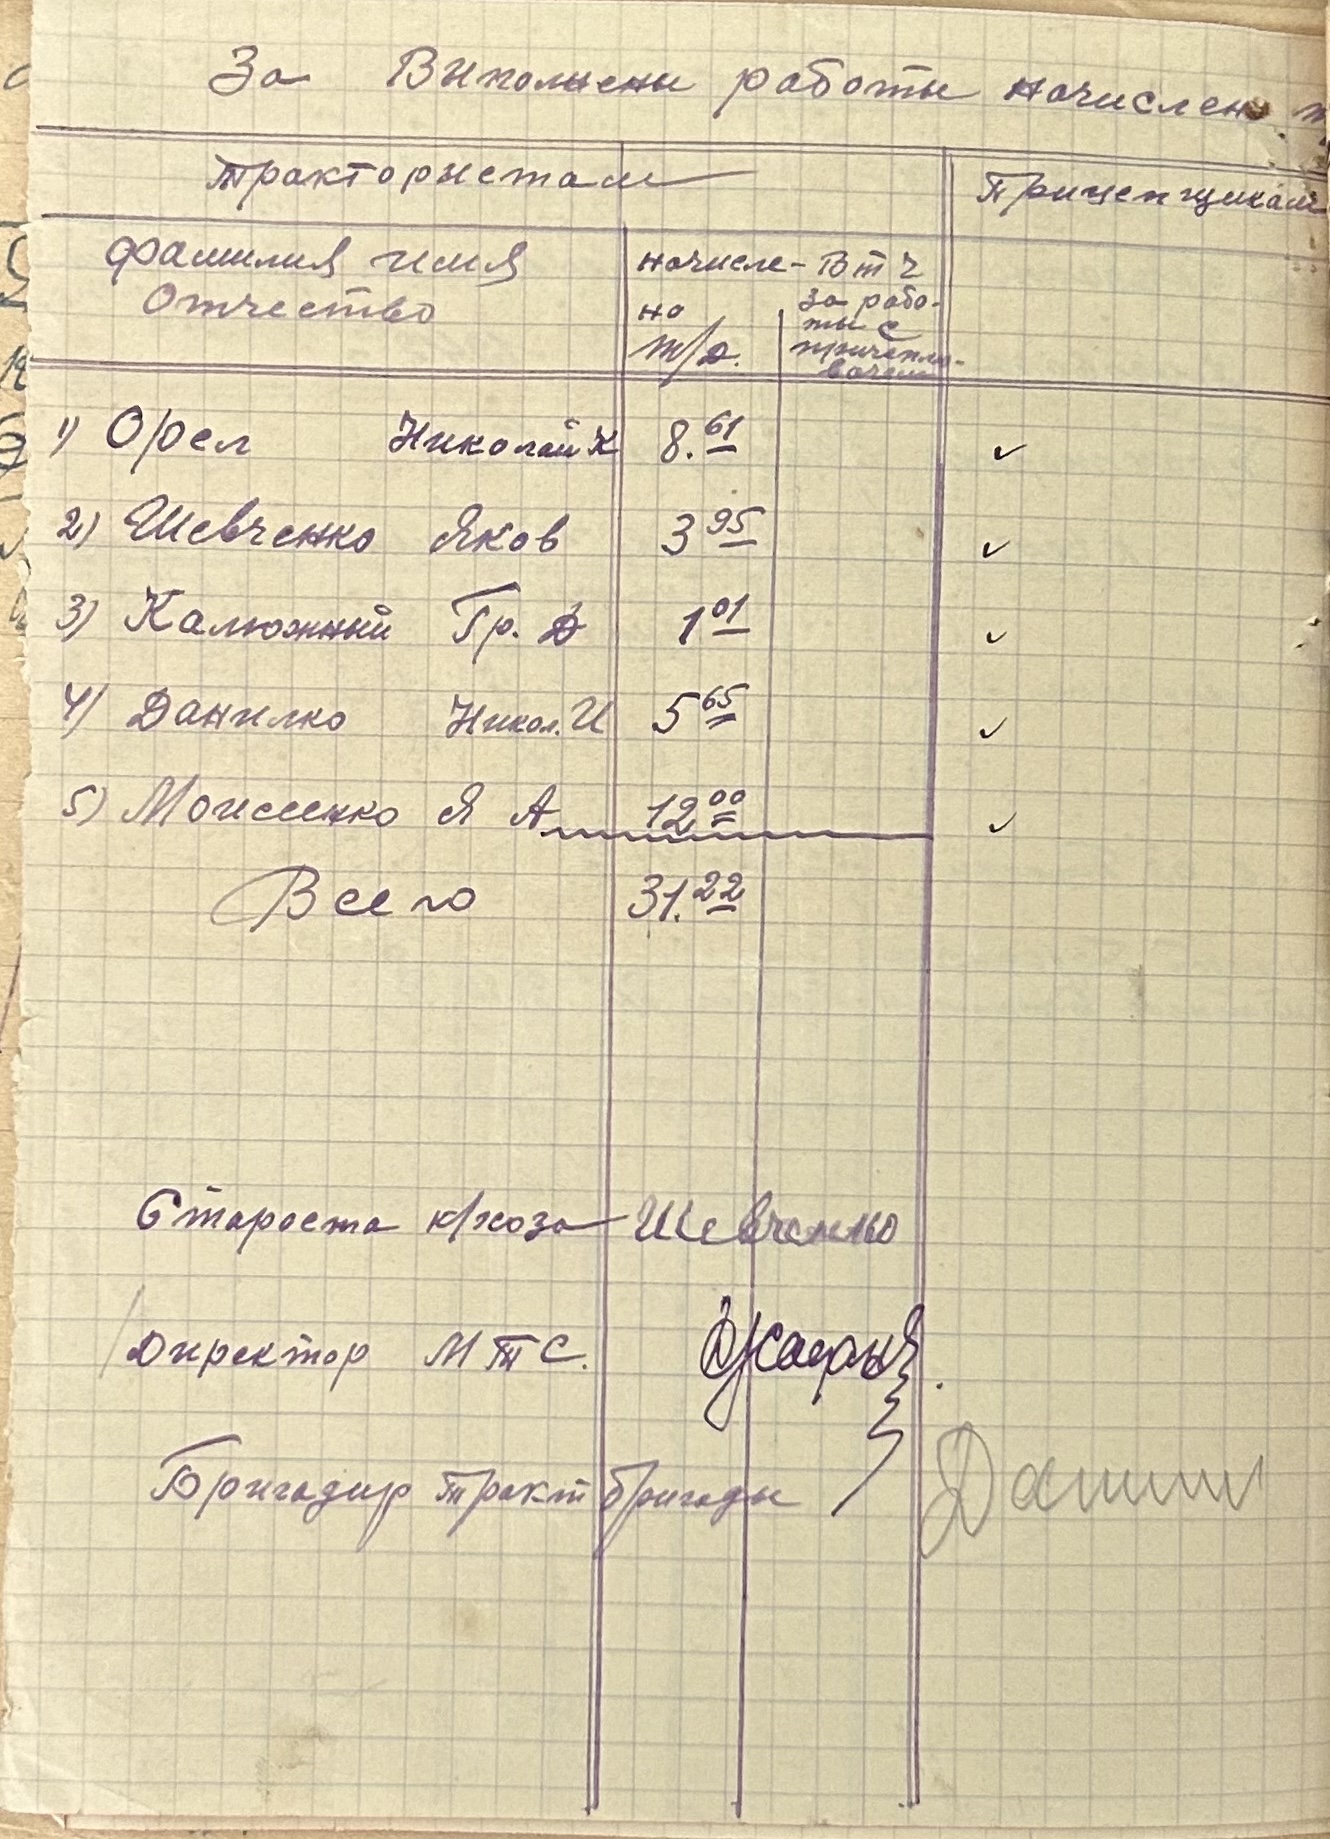 За Виполнены работы начислено
Трактористам
Прицепщикам
Фамилия имя
Отчество
начисле-
но
т/д.
В т ч
за рабо-
ты с
1) Орел Николай К 8.61
2) Шевченко Яков 3 95
3) Калюжный Гр. Д 1 01
4) Данилко Никол. И 5 65
5) Моисеенко Я А 12 00
Всего 31.22
Староста к/хоза Шевченко
Директор МТС.
Бригадир тракт бригады